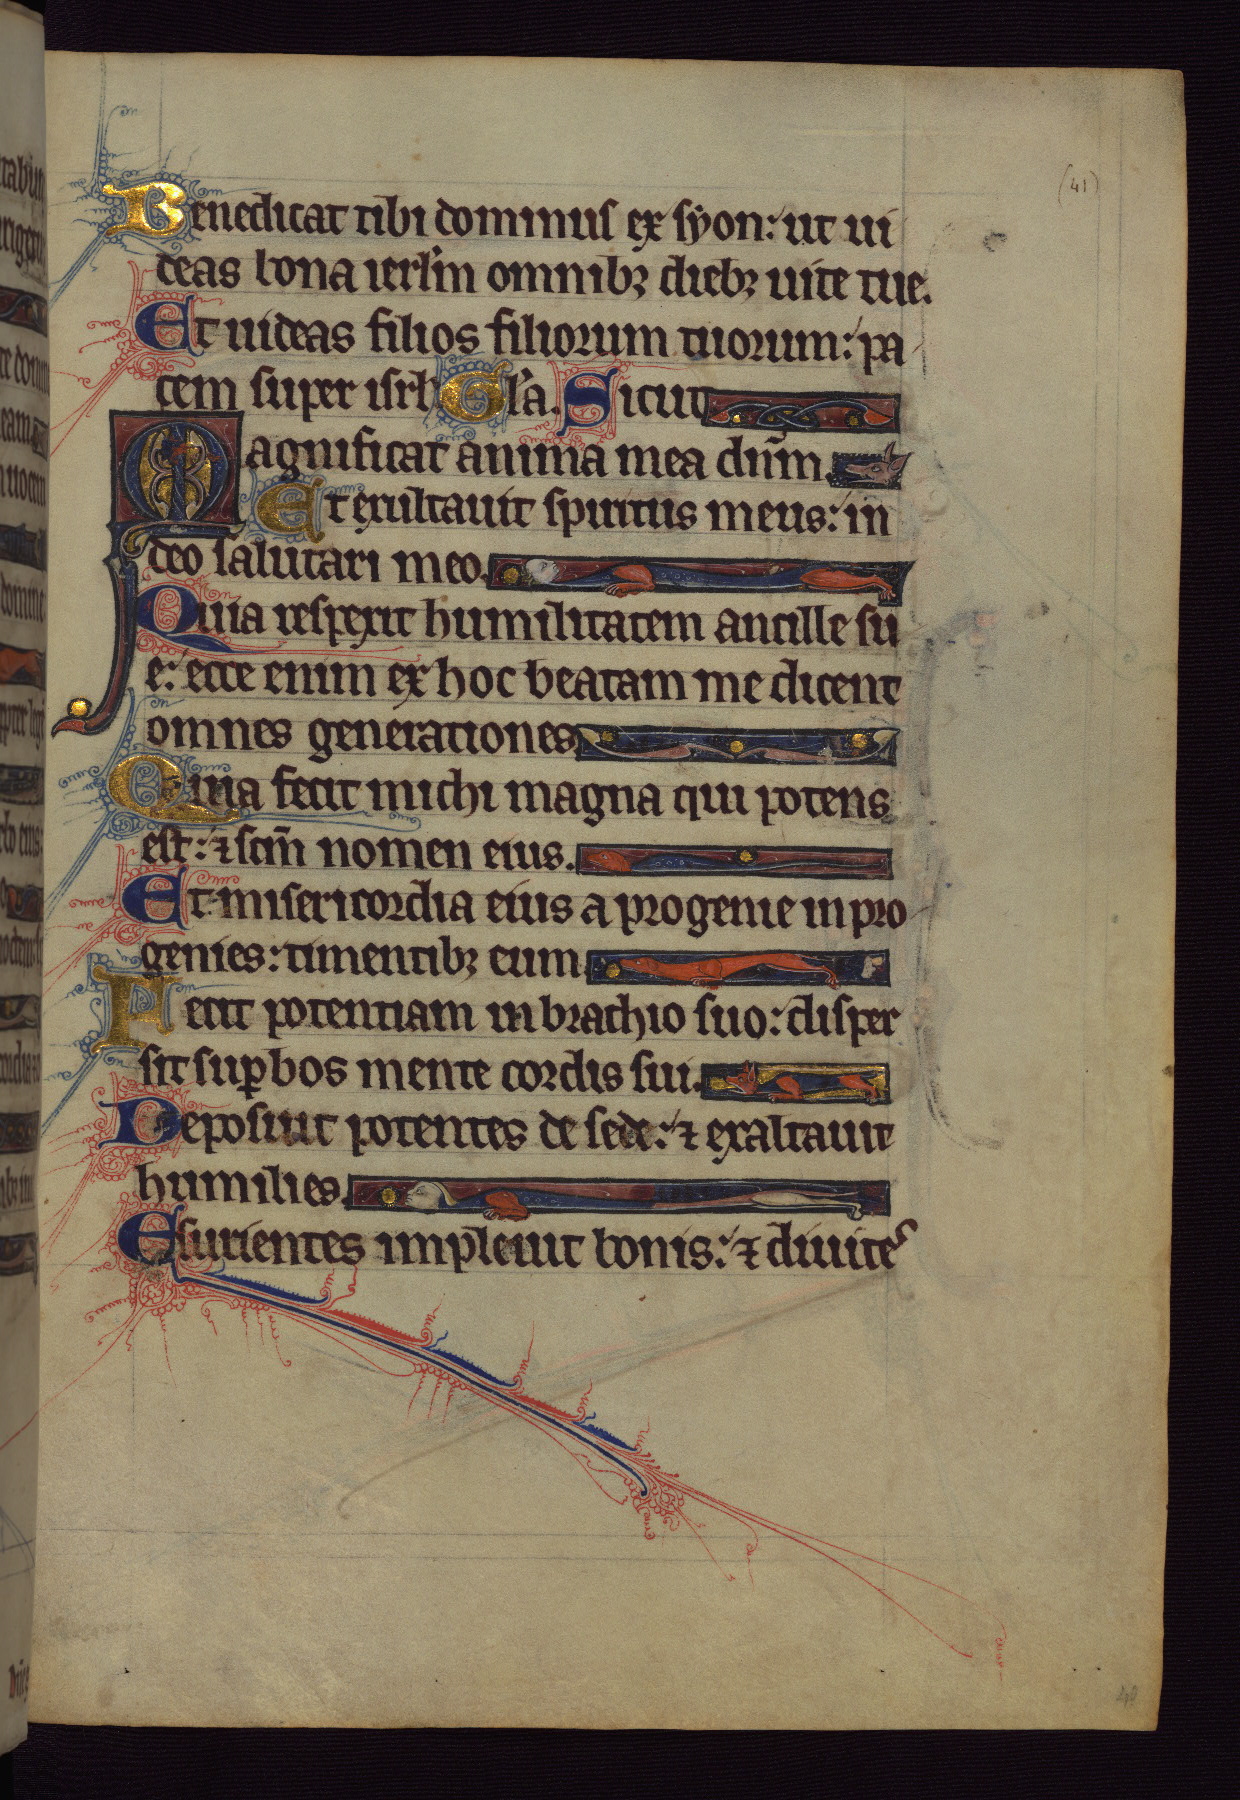 (41)
Benedicat tibi dominus ex syon: ut ui
deas bona ierl'm omnibꝫ diebꝫ uite tue.
Et uideas filios filiorum tuorum: pa
cem super isrl'. Gl'a. Sicut
Magnificat anima mea dūm.
Et exultauit spiritus meus: in
deo salutari meo.
Quia respexit humilitatem ancille su
e: ecce enim ex hoc beatam me dicent
omnes generationes.
Quia fecit michi magna qui potens
est: ⁊ scm̄ nomen eius.
Et misericordia eius a progenie in pro
genies: timentibꝫ eum.
Fecit potentiam in brachio suo: disper
sit suꝑbos mente cordis sui.
Deposuit potentes de sede: ⁊ exaltauit
humilies.
Esurientes impleuit bonis: ⁊ diuites
40